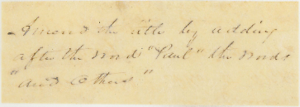 Amend the title by adding
after the word "Paul" the words
"and others"